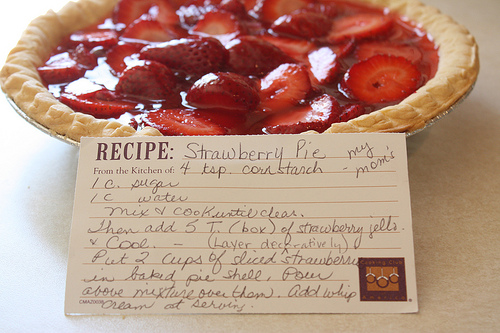 RECIPE: Strawberry Pie my mom's
From the Kitchen of: 4 tsp. cornstarch -
1 c. sugar
1 c water
mix & cook until clear.
Then add 5 T. (box) of strawberry jello.
& Cool. - (Layer decoratively)
Put 2 cups of sliced strawberrys
in baked pie shell, Pour
above mixture over them. Add whip
cream at serving.